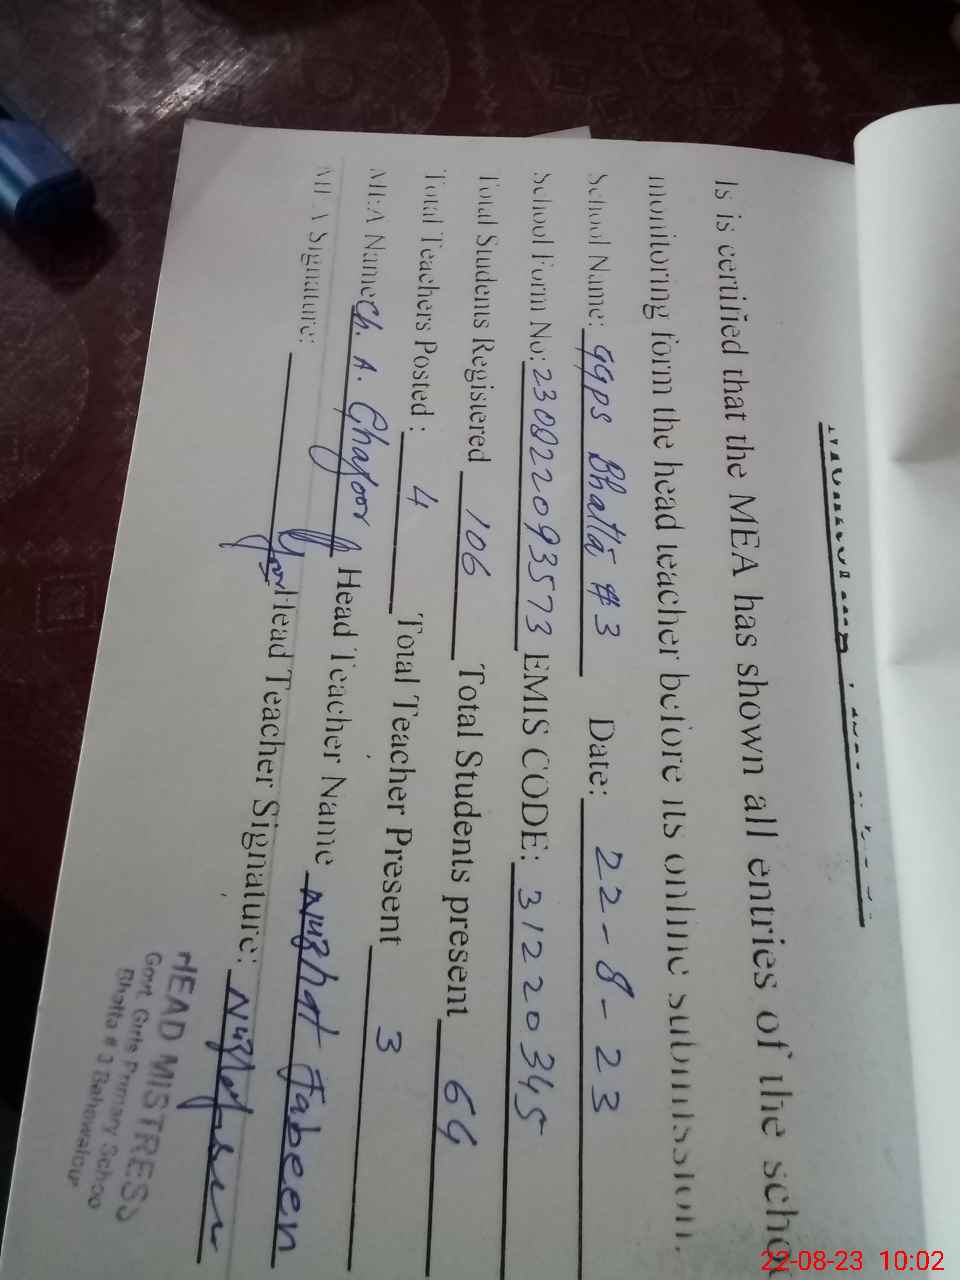 Is is certified that the MEA has shown all entries of the scho
monitoring form the head teacher before its online submission.
School Name: ggps Bhatta #3 Date: 22-8-23
School Form No: 230822093573 EMIS CODE: 31220345
Total Students Registered 106 Total Students present 69
Total Teachers Posted: 4 Total Teacher Present 3
MEA Name Ch. A. Ghafoor Head Teacher Name Nuzhat Jabeen
MEA Signature: Head Teacher Signature:
HEAD MISTRESS
Govt. Girls Primary Schoo
Bhatta # 3 Bahawalpur
22-08-23 10:02